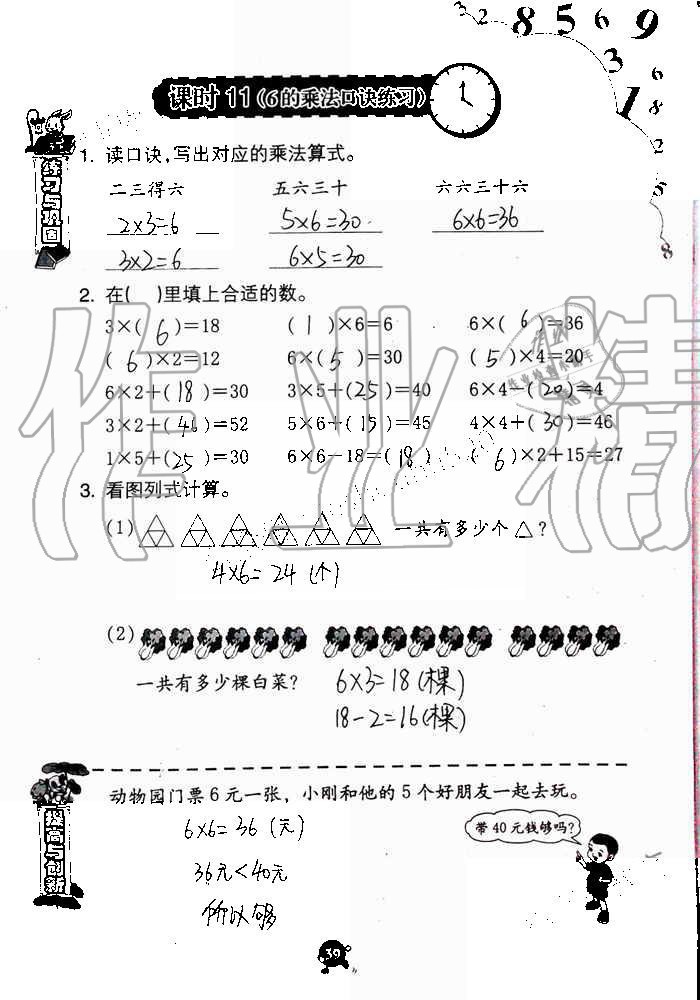 3 2 8 5 6 9
3 1 6 8 2 5 8
课时 11(6的乘法口诀练习)
练习与巩固
1. 读口诀,写出对应的乘法算式。
二三得六 五六三十 六六三十六
2×3=6 5×6=30 6×6=36
3×2=6 6×5=30
2. 在( )里填上合适的数。
3×(6)=18 (1)×6=6 6×(6)=36
(6)×2=12 6×(5)=30 (5)×4=20
6×2+(18)=30 3×5+(25)=40 6×4-(20)=4
3×2+(46)=52 5×6+(15)=45 4×4+(30)=46
1×5+(25)=30 6×6-18=(18) (6)×2+15=27
3. 看图列式计算。
(1) 一共有多少个△?
4×6=24(个)
(2)
一共有多少棵白菜? 6×3=18(棵)
18-2=16(棵)
提高与创新
动物园门票6元一张,小刚和他的5个好朋友一起去玩。
6×6=36(元) 带40元钱够吗?
36元<40元
所以够
39
作业精